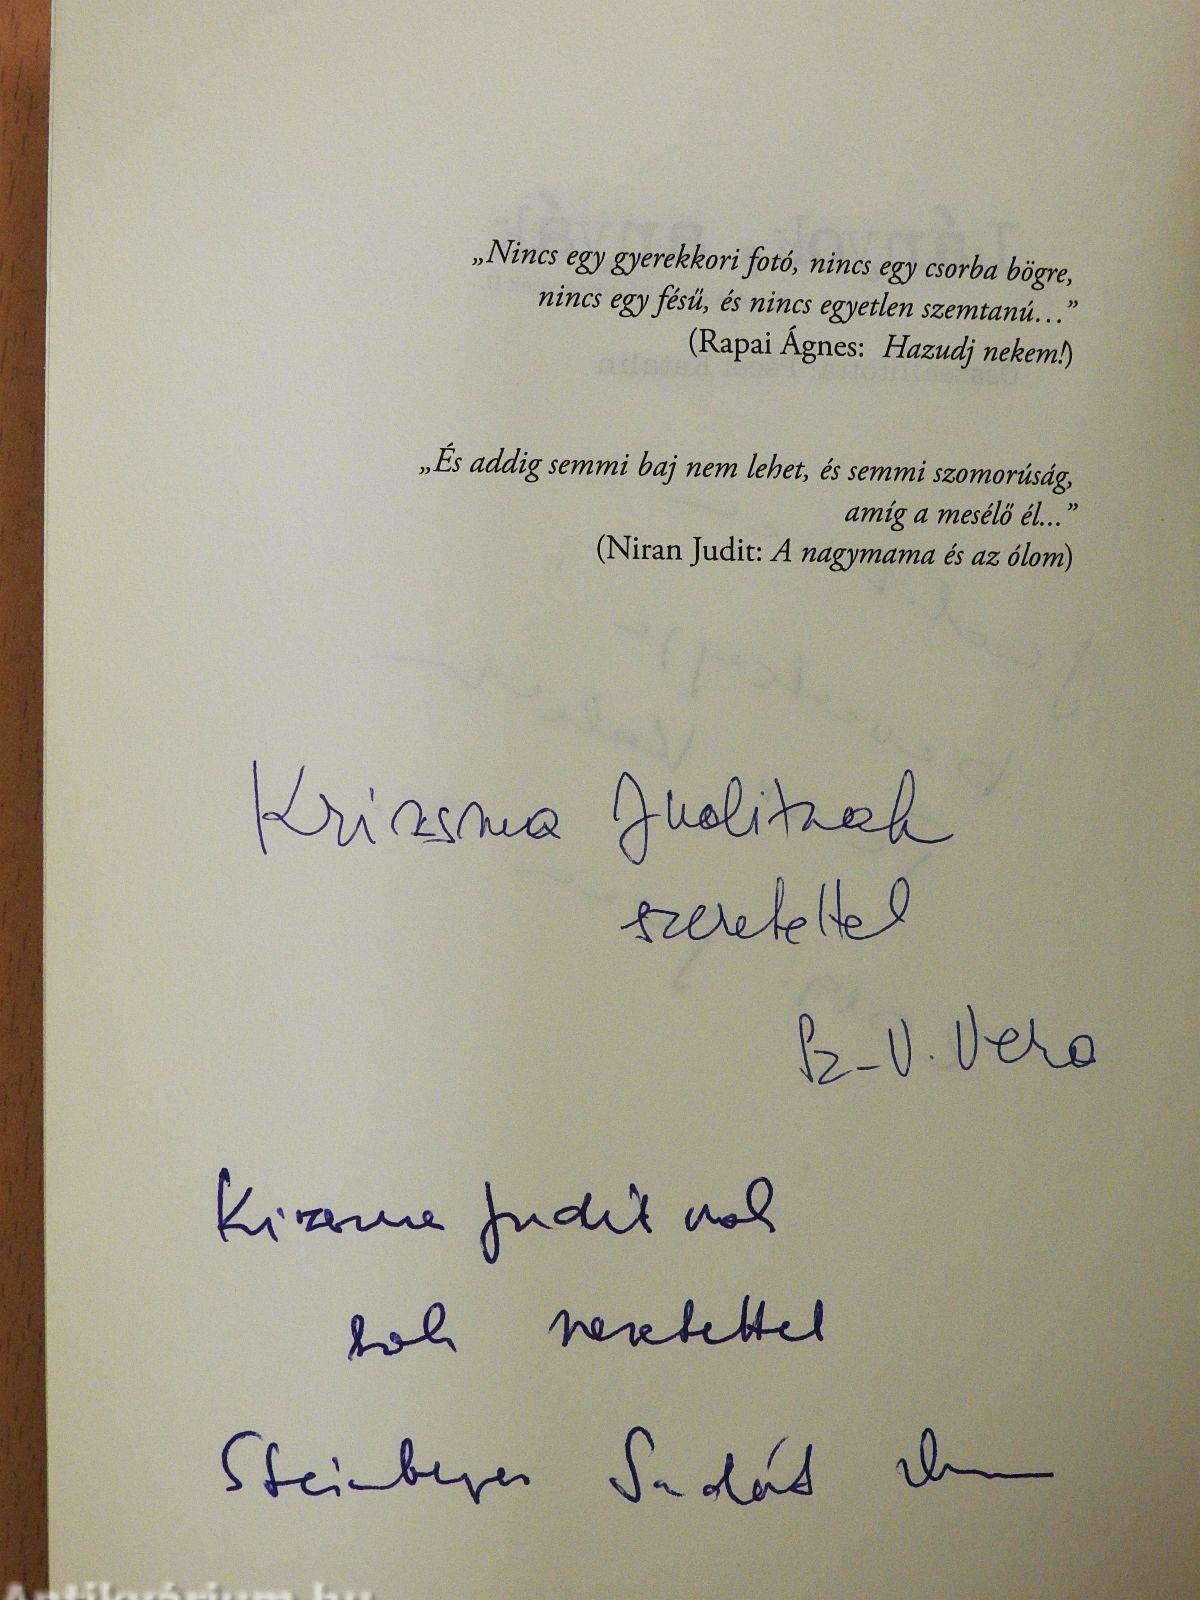 „Nincs egy gyerekkori fotó, nincs egy csorba bögre,
nincs egy fésű, és nincs egyetlen szemtanú…”
(Rapai Ágnes: Hazudj nekem!)
„És addig semmi baj nem lehet, és semmi szomorúság,
amíg a mesélő él…”
(Niran Judit: A nagymama és az ólom)
Krizsma Juditnak
szeretettel
Sz-V. Vera
Judit nak
sok szeretettel
Antikvárium.hu